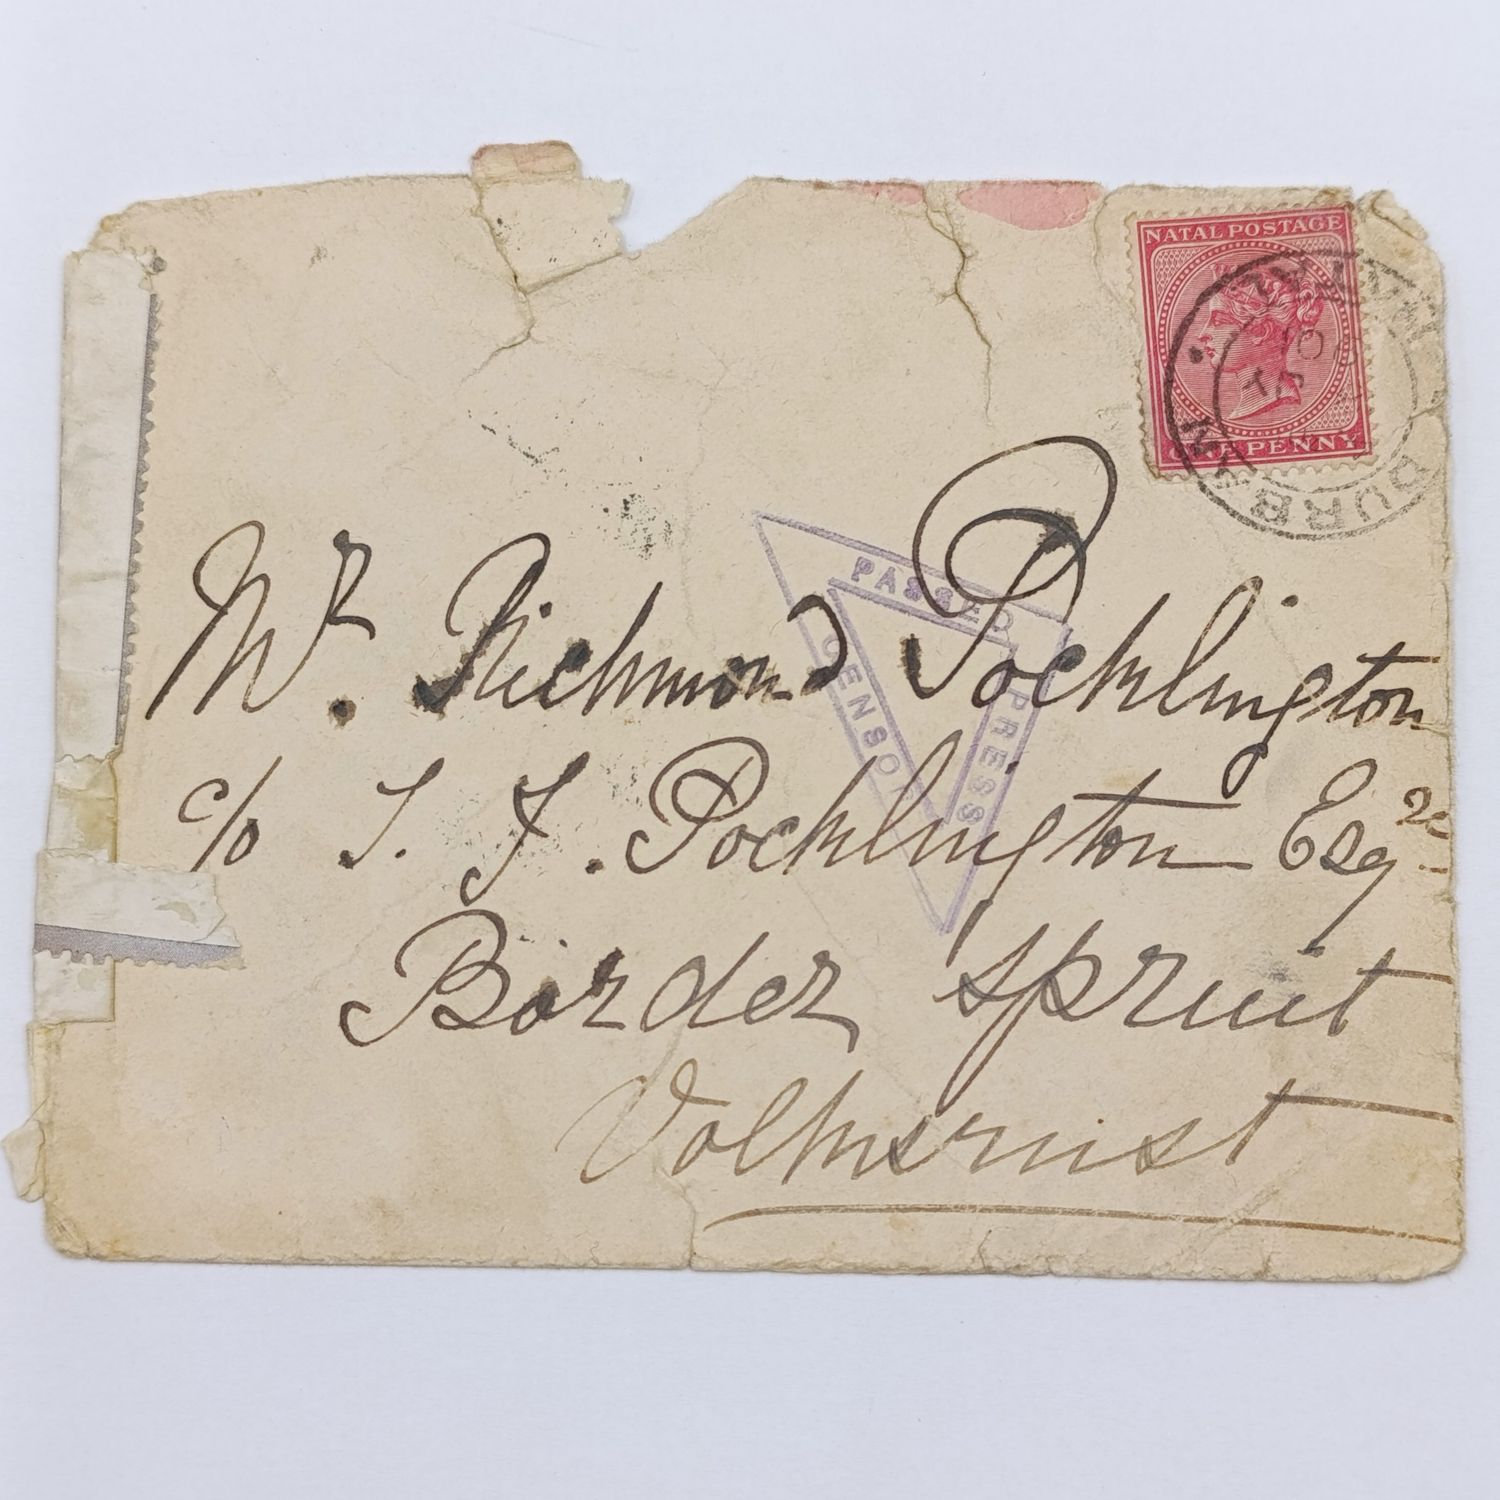 NATAL POSTAGE
ONE PENNY
DURBAN
NATAL
PASSED
PRESS
CENSOR
Mr. Richmond Pocklington
c/o S. F. Pocklington Esqre
Border Spruit
Volksrust